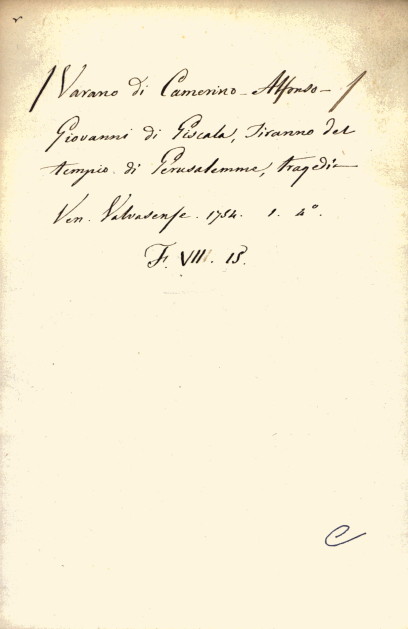 / Varano di Camerino - Alfonso - /
Giovanni di Giscala, Tiranno del
tempio di Gerusalemme, tragedia
Ven. Valvasense. 1754. 1. 4°.
F. VIII. 15.
C